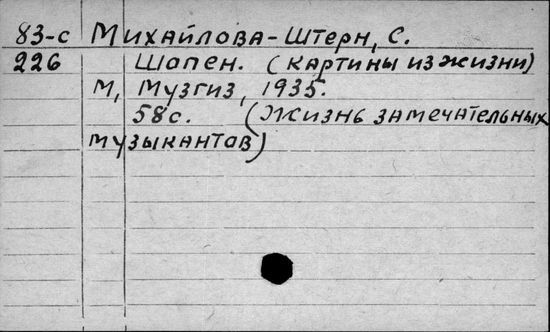 83-с Михайлова-Штерн, С.
226 Шопен. (картины из жизни)
М, Музгиз, 1935.
58с. (Жизнь замечательных
музыкантов)